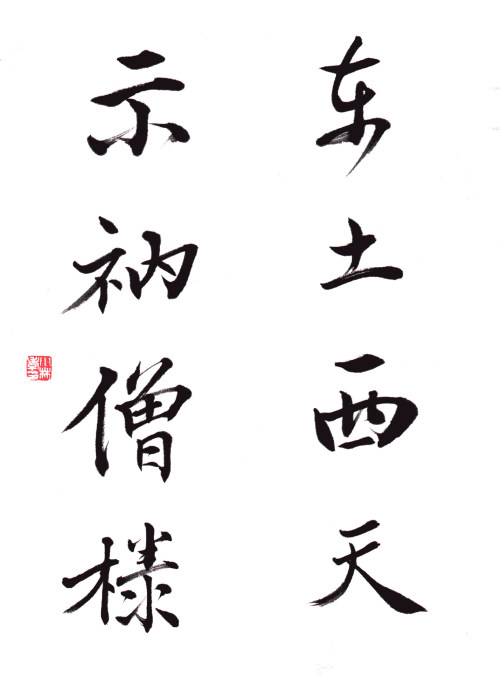 东土西天
示衲僧様